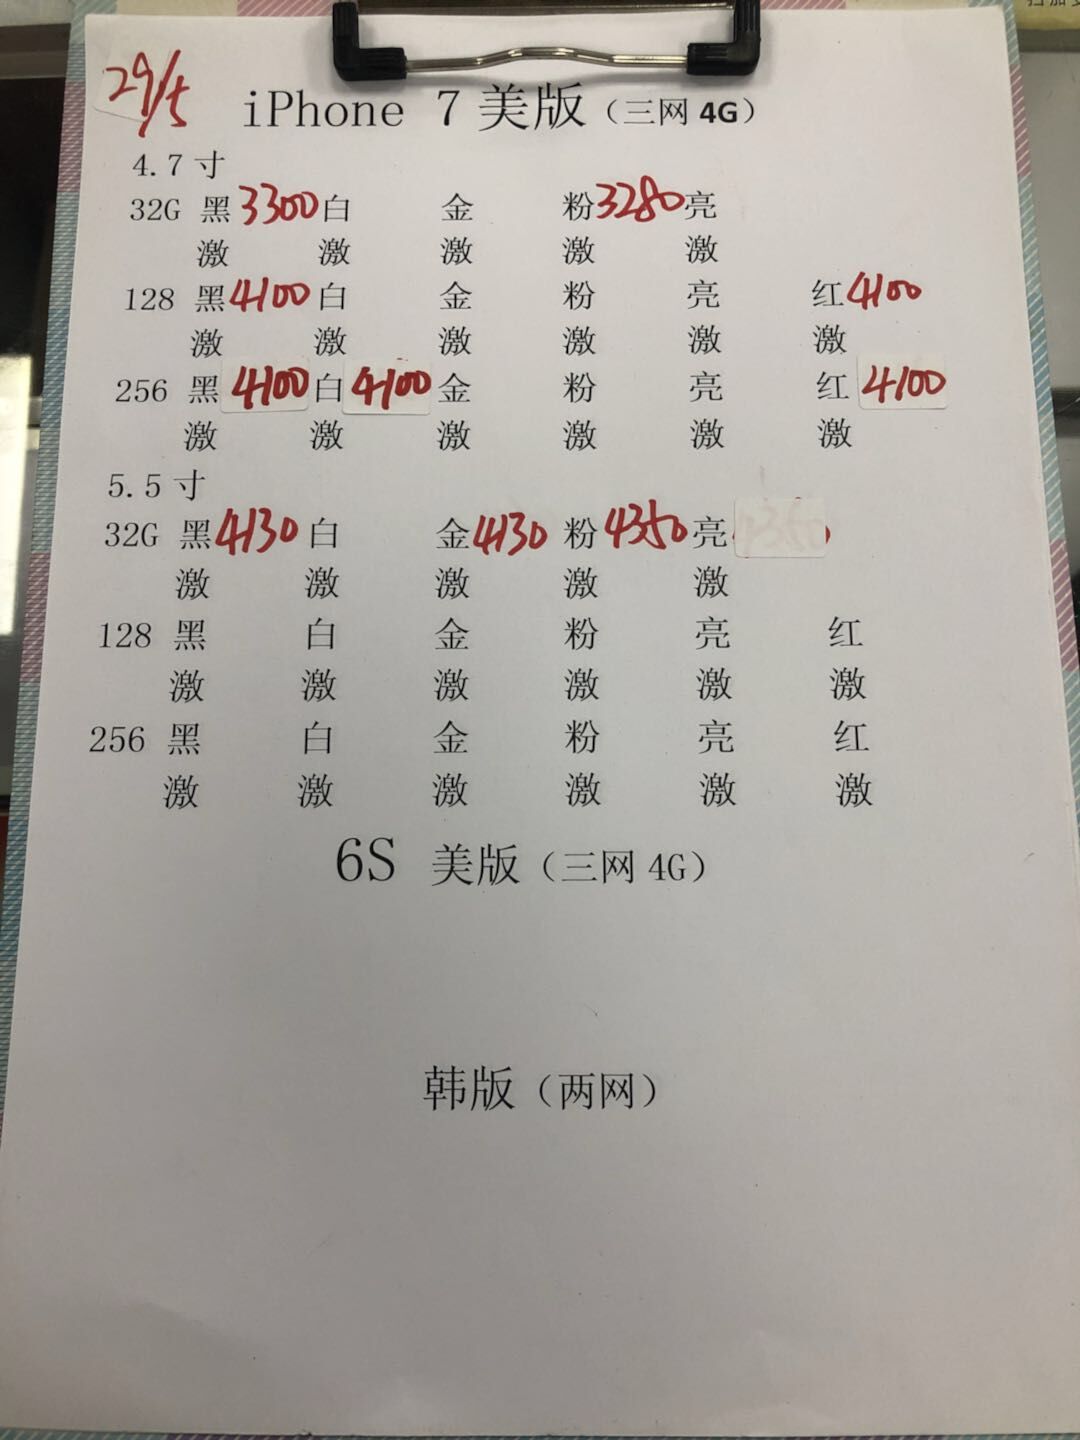 29/5
iPhone 7 美版（三网 4G）
4.7 寸
32G 黑 3300 白 金 粉 3280 亮
激 激 激 激 激
128 黑 4100 白 金 粉 亮 红 4100
激 激 激 激 激 激
256 黑 4100 白 4100 金 粉 亮 红 4100
激 激 激 激 激 激
5.5 寸
32G 黑 4130 白 金 4130 粉 4350 亮
激 激 激 激 激
128 黑 白 金 粉 亮 红
激 激 激 激 激 激
256 黑 白 金 粉 亮 红
激 激 激 激 激 激
6S 美版（三网 4G）
韩版（两网）